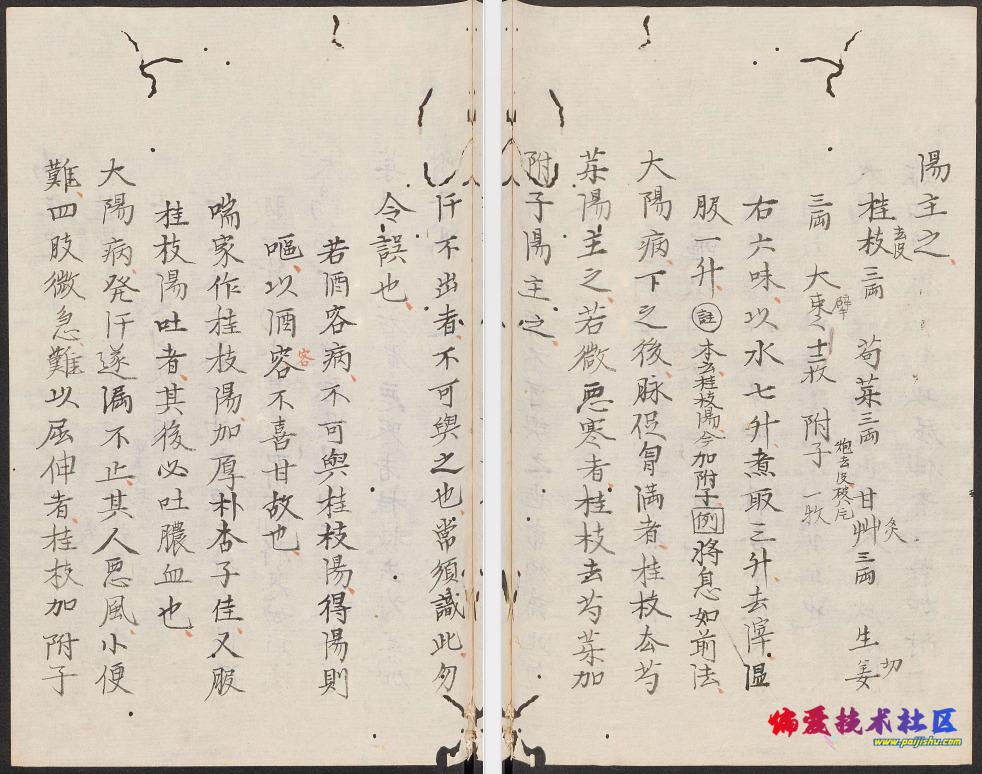 陽主之
桂枝去皮三両 苟菜三両 甘艸炙三両 生姜切
三両 大束擘十二枚 附子炮去皮破八片一枚
右六味以水七升煮取三升去滓温
服一升註本云桂枝陽今加附子例將息如前法
大陽病下之後脉促胷満者桂枝去芍
菜陽主之若微悪寒者桂枝去芍菜加
附子陽主之
汗不出者不可與之也常須識此勿
令誤也
若酒容病不可與桂枝湯得陽則
嘔以酒容不喜甘故也
容
喘家作桂枝陽加厚朴杏子佳又服
桂枝陽吐者其後必吐膿血也
大陽病発汗遂漏不止其人悪風小便
難四肢微急難以屈伸者桂枝加附子
偏爱技术社区
www.paijishu.com